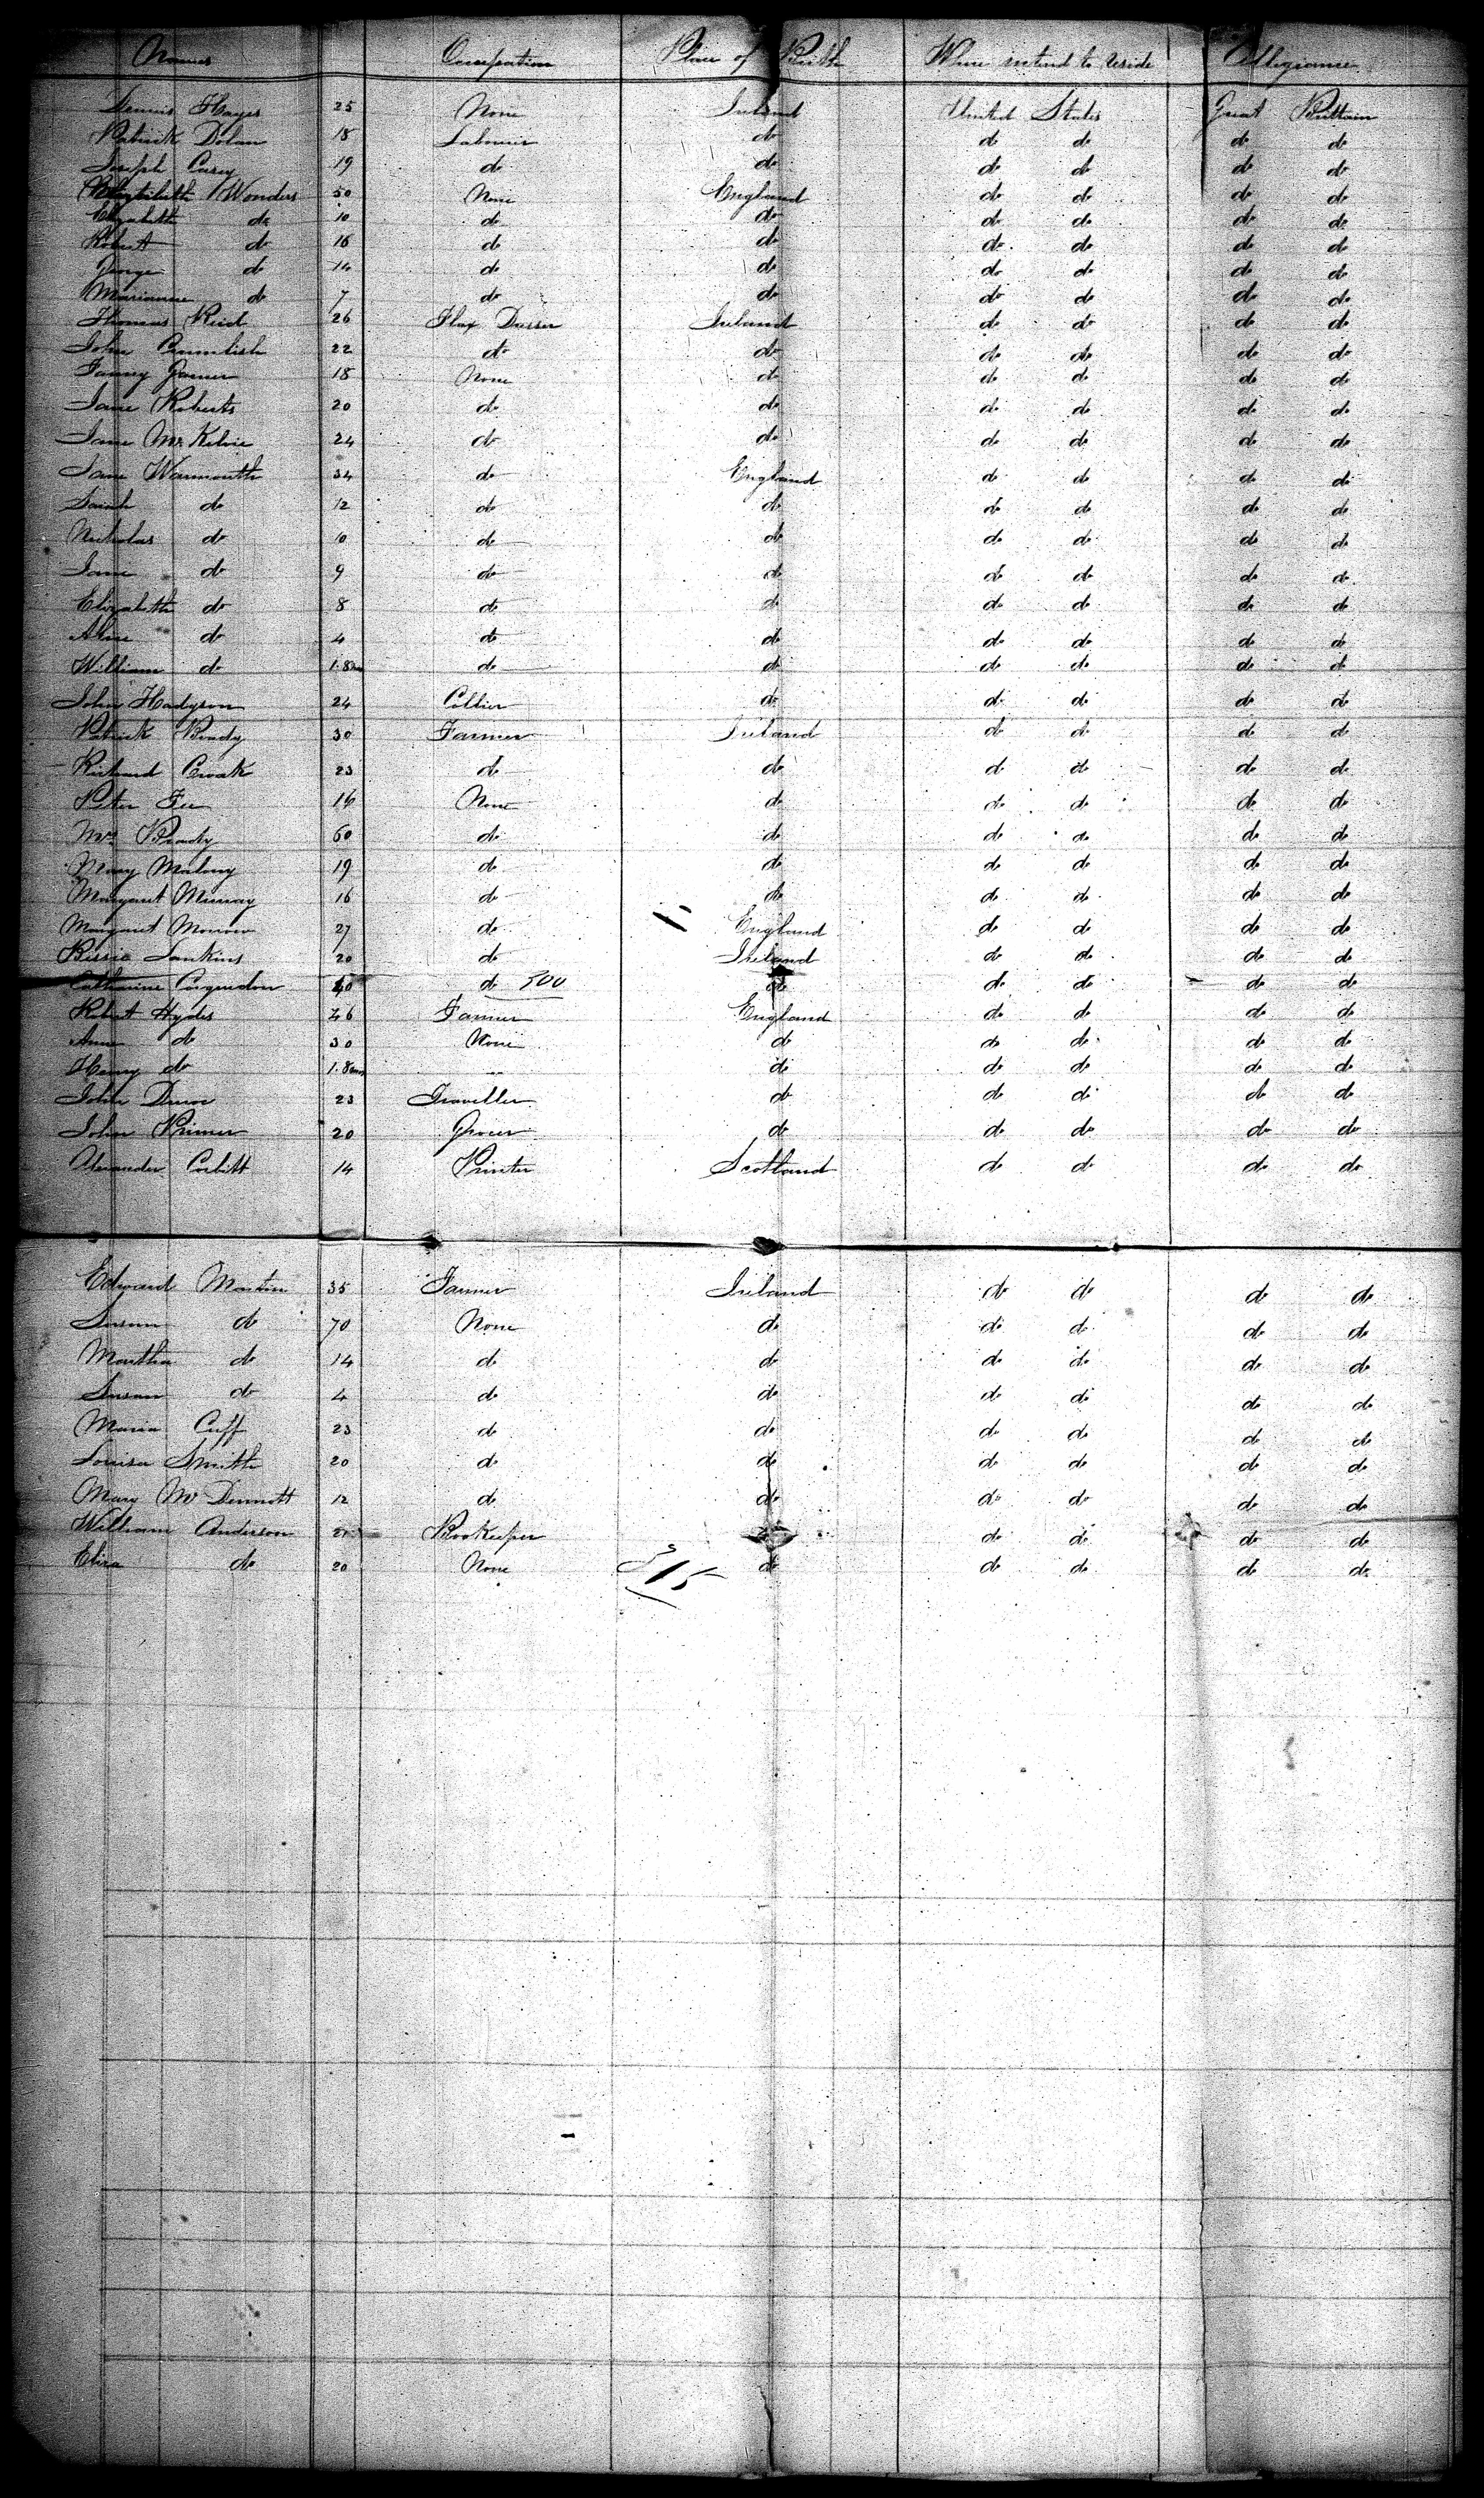 Names Occupation Place of Birth Where intend to reside Allegiance
Dennis Hayes 25 None Ireland United States Great Brittain
Patrick Dolan 18 Labourer do do do do do
Joseph Carey 19 do do do do do do
Wonders 50 None England do do do do
Elizabeth do 10 do do do do do do
Robert do 16 do do do do do do
George do 14 do do do do do do
Marianne do 7 do do do do do do
Thomas Reid 26 Flax Dresser Ireland do do do do
John 22 do do do do do do
Fanny 18 None do do do do do
Jane Roberts 20 do do do do do do
Jane McKelvie 24 do do do do do do
Jane Warmouth 34 do England do do do do
Sarah do 12 do do do do do do
Nicholas do 10 do do do do do do
Jane do 9 do do do do do do
Elizabeth do 8 do do do do do do
Anne do 4 do do do do do do
William do 1.8 do do do do do do
John Hodgson 24 Collier do do do do do
Patrick Brady 30 Farmer Ireland do do do do
Richard Croak 23 do do do do do do
Peter Fee 16 None do do do do do
Mrs Brady 60 do do do do do do
Mary Malony 19 do do do do do do
Margaret Murray 16 do do do do do do
Margaret Morrow 27 do England do do do do
Jenkins 20 do Ireland do do do do
Catharine 40 do 300 do do do do do
Robert Hydes 46 Farmer England do do do do
Anne do 30 None do do do do do
Henry do 1.8 do do do do do
John 23 Traveller do do do do do
John Primer 20 Grocer do do do do do
Alexander Corbitt 14 Printer Scotland do do do do
Edward Martin 35 Farmer Ireland do do do do
Susan do 70 None do do do do do
Martha do 14 do do do do do do
Susan do 4 do do do do do do
Maria Cuff 23 do do do do do do
Louisa Smith 20 do do do do do do
Mary McDermott 12 do do do do do do
William Anderson Bookeeper do do do do
Eliza do 20 None 315 do do do do do